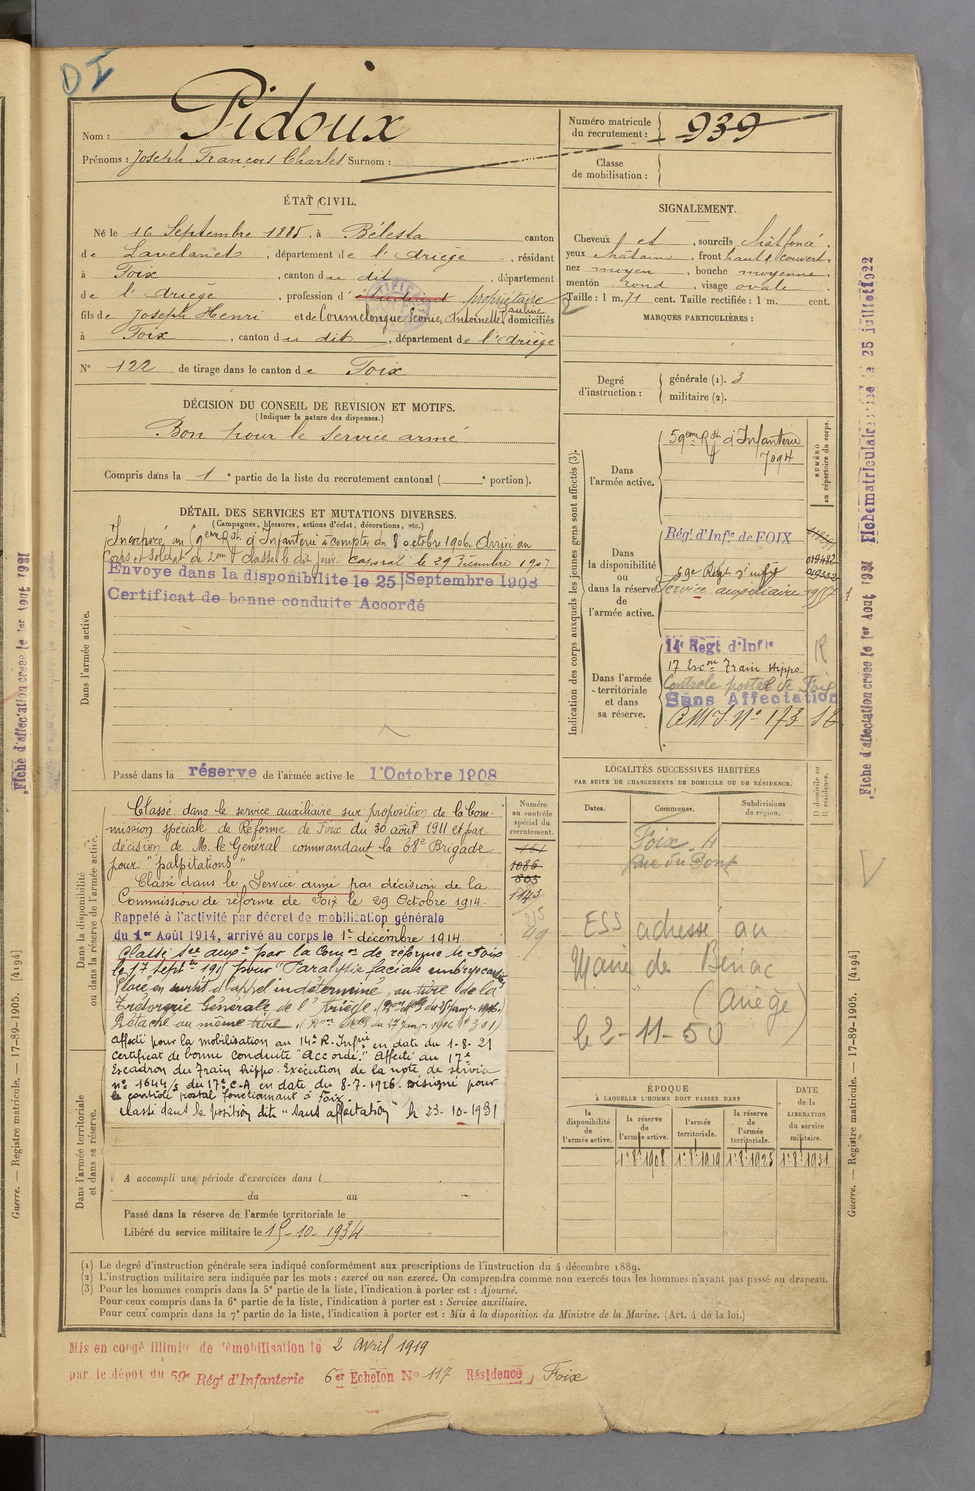 DI
Nom : Pidoux
Prénoms : Joseph François Charles Surnom :
Numéro matricule du recrutement : 939
Classe de mobilisation :
ÉTAT CIVIL.
Né le 16 Septembre 1885, à Bélesta canton
de Lavelanet, département de l'Ariège, résidant
à Foix, canton du dit, département
de l'Ariège, profession d'étudiant propriétaire
fils de Joseph Henri et de Coumelongue Léonie, Antoinette, Pauline domiciliés
à Foix, canton du dit, département de l'Ariège
N° 122 de tirage dans le canton de Foix
DÉCISION DU CONSEIL DE REVISION ET MOTIFS.
(Indiquer la nature des dispenses.)
Bon pour le service armé
Compris dans la 1e partie de la liste du recrutement cantonal ( e portion).
SIGNALEMENT.
Cheveux et , sourcils châtfoncé.
yeux châtains, front haut couvert,
nez moyen, bouche moyenne,
menton rond, visage ovale.
Taille : 1 m. 71 cent. Taille rectifiée : 1 m. cent.
MARQUES PARTICULIÈRES :
Degré d'instruction : générale (1). 3
militaire (2).
DÉTAIL DES SERVICES ET MUTATIONS DIVERSES.
(Campagnes, blessures, actions d'éclat, décorations, etc.)
Dans l'armée active.
Incorporé au 59eme Rgt d'Infanterie à compter du 8 octobre 1906. Arrivé au
Corps et soldat de 2me classe le dit jour. Caporal le 29 Décembre 1907
Envoyé dans la disponibilité le 25 Septembre 1908
Certificat de bonne conduite Accordé
Passé dans la réserve de l'armée active le 1er Octobre 1908
Indication des corps auxquels les jeunes gens sont affectés (3).
NUMÉRO au répertoire du corps.
Dans l'armée active.
59eme Rgt d'Infanterie
7094
Dans la disponibilité ou dans la réserve de l'armée active.
Régt d'Infie de FOIX
59e Régt d'infie
Service auxiliaire
Dans l'armée territoriale et dans sa réserve.
14e Régt d'Infie
17 Escon Train Hippo
Controle postal de Foix
Sans Affectation
R
Dans la disponibilité ou dans la réserve de l'armée active.
Numéro au contrôle spécial du recrutement.
Classé dans le service auxiliaire sur proposition de la Com-
mission spéciale de Réforme de Foix du 30 août 1911 et par
décision de M. le Général commandant la 68e Brigade
pour "palpitations"
Classé dans le Service armé par décision de la
Commission de réforme de Foix le 29 Octobre 1914.
Rappelé à l'activité par décret de mobilisation générale
du 1er Août 1914, arrivé au corps le 1er décembre 1914.
Classé Sce auxre par la Comon de réforme de Foix
le 17 Septre pour "Paralysie faciale
Placé en sursis d'appel indéterminé, au titre de la
Trésorerie Générale de l'Ariège
Détaché au même titre
affecté pour la mobilisation au 14e R. Infie en date du 1-8-21
Certificat de bonne conduite "Accordé." Affecté au 17e
Escadron du Train hippo. Exécution de la note de service
n° 1644/S du 17e C.A en date du 8-7-1926. Désigné pour
le contrôle postal fonctionnant à Foix.
classé dans la position dite "Sans affectation" le 23-10-1931
1086
803
1143
Dans l'armée territoriale et dans sa réserve.
A accompli une période d'exercices dans l
du au
Passé dans la réserve de l'armée territoriale le
Libéré du service militaire le 15-10-1934
LOCALITÉS SUCCESSIVES HABITÉES
PAR SUITE DE CHANGEMENTS DE DOMICILE OU DE RÉSIDENCE.
Dates. Communes. Subdivisions de région. D domicile ou R résidence.
Foix
Rue du Pont
ESS adressé au
Maire de Bénac
(Ariège)
le 2-11-50
ÉPOQUE
À LAQUELLE L'HOMME DOIT PASSER DANS
la disponibilité de l'armée active.
la réserve de l'armée active.
l'armée territoriale.
la réserve de l'armée territoriale.
DATE de la LIBÉRATION du service militaire.
1er 8bre 1908 1er 8bre 1919 1er 8bre 1925 1er 8bre 1931
(1) Le degré d'instruction générale sera indiqué conformément aux prescriptions de l'instruction du 4 décembre 1889.
(2) L'instruction militaire sera indiquée par les mots : exercé ou non exercé. On comprendra comme non exercés tous les hommes n'ayant pas passé au drapeau.
(3) Pour les hommes compris dans la 5e partie de la liste, l'indication à porter est : Ajourné.
Pour ceux compris dans la 6e partie de la liste, l'indication à porter est : Service auxiliaire.
Pour ceux compris dans la 7e partie de la liste, l'indication à porter est : Mis à la disposition du Ministre de la Marine. (Art. 4 de la loi.)
Mis en congé illimité de démobilisation le 2 avril 1919
par le dépôt du 59e Régt d'Infanterie 6er Echelon N° 117 Résidence, Foix
Fiche matriculaire créée le 25 juillet 1922
Fiche d'affectation créée le 1er Août 1931
Guerre. — Registre matricule. — 17-89-1905. [4194]
Fiche d'affectation créée le 1er Août 1931
Guerre. — Registre matricule. — 17-89-1905. [4194]